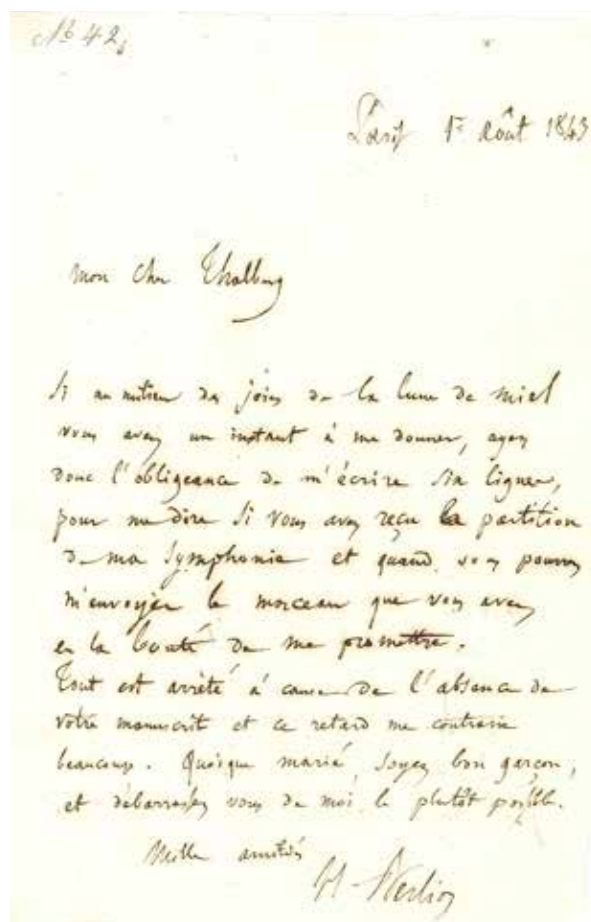 No 42.
Paris 1er Août 1843
mon cher Thalberg
Si au milieu des joies de la lune de miel
vous avez un instant à me donner, ayez
donc l'obligeance de m'écrire six lignes,
pour me dire si vous avez reçu la partition
de ma Symphonie et quand vous pourrez
m'envoyer le morceau que vous avez
eu la bonté de me promettre.
Tout est arrêté à cause de l'absence de
votre manuscrit et ce retard me contrarie
beaucoup. Quoique marié, soyez bon garçon,
et débarrassez vous de moi le plutôt possible.
Mille amitiés
H. Berlioz